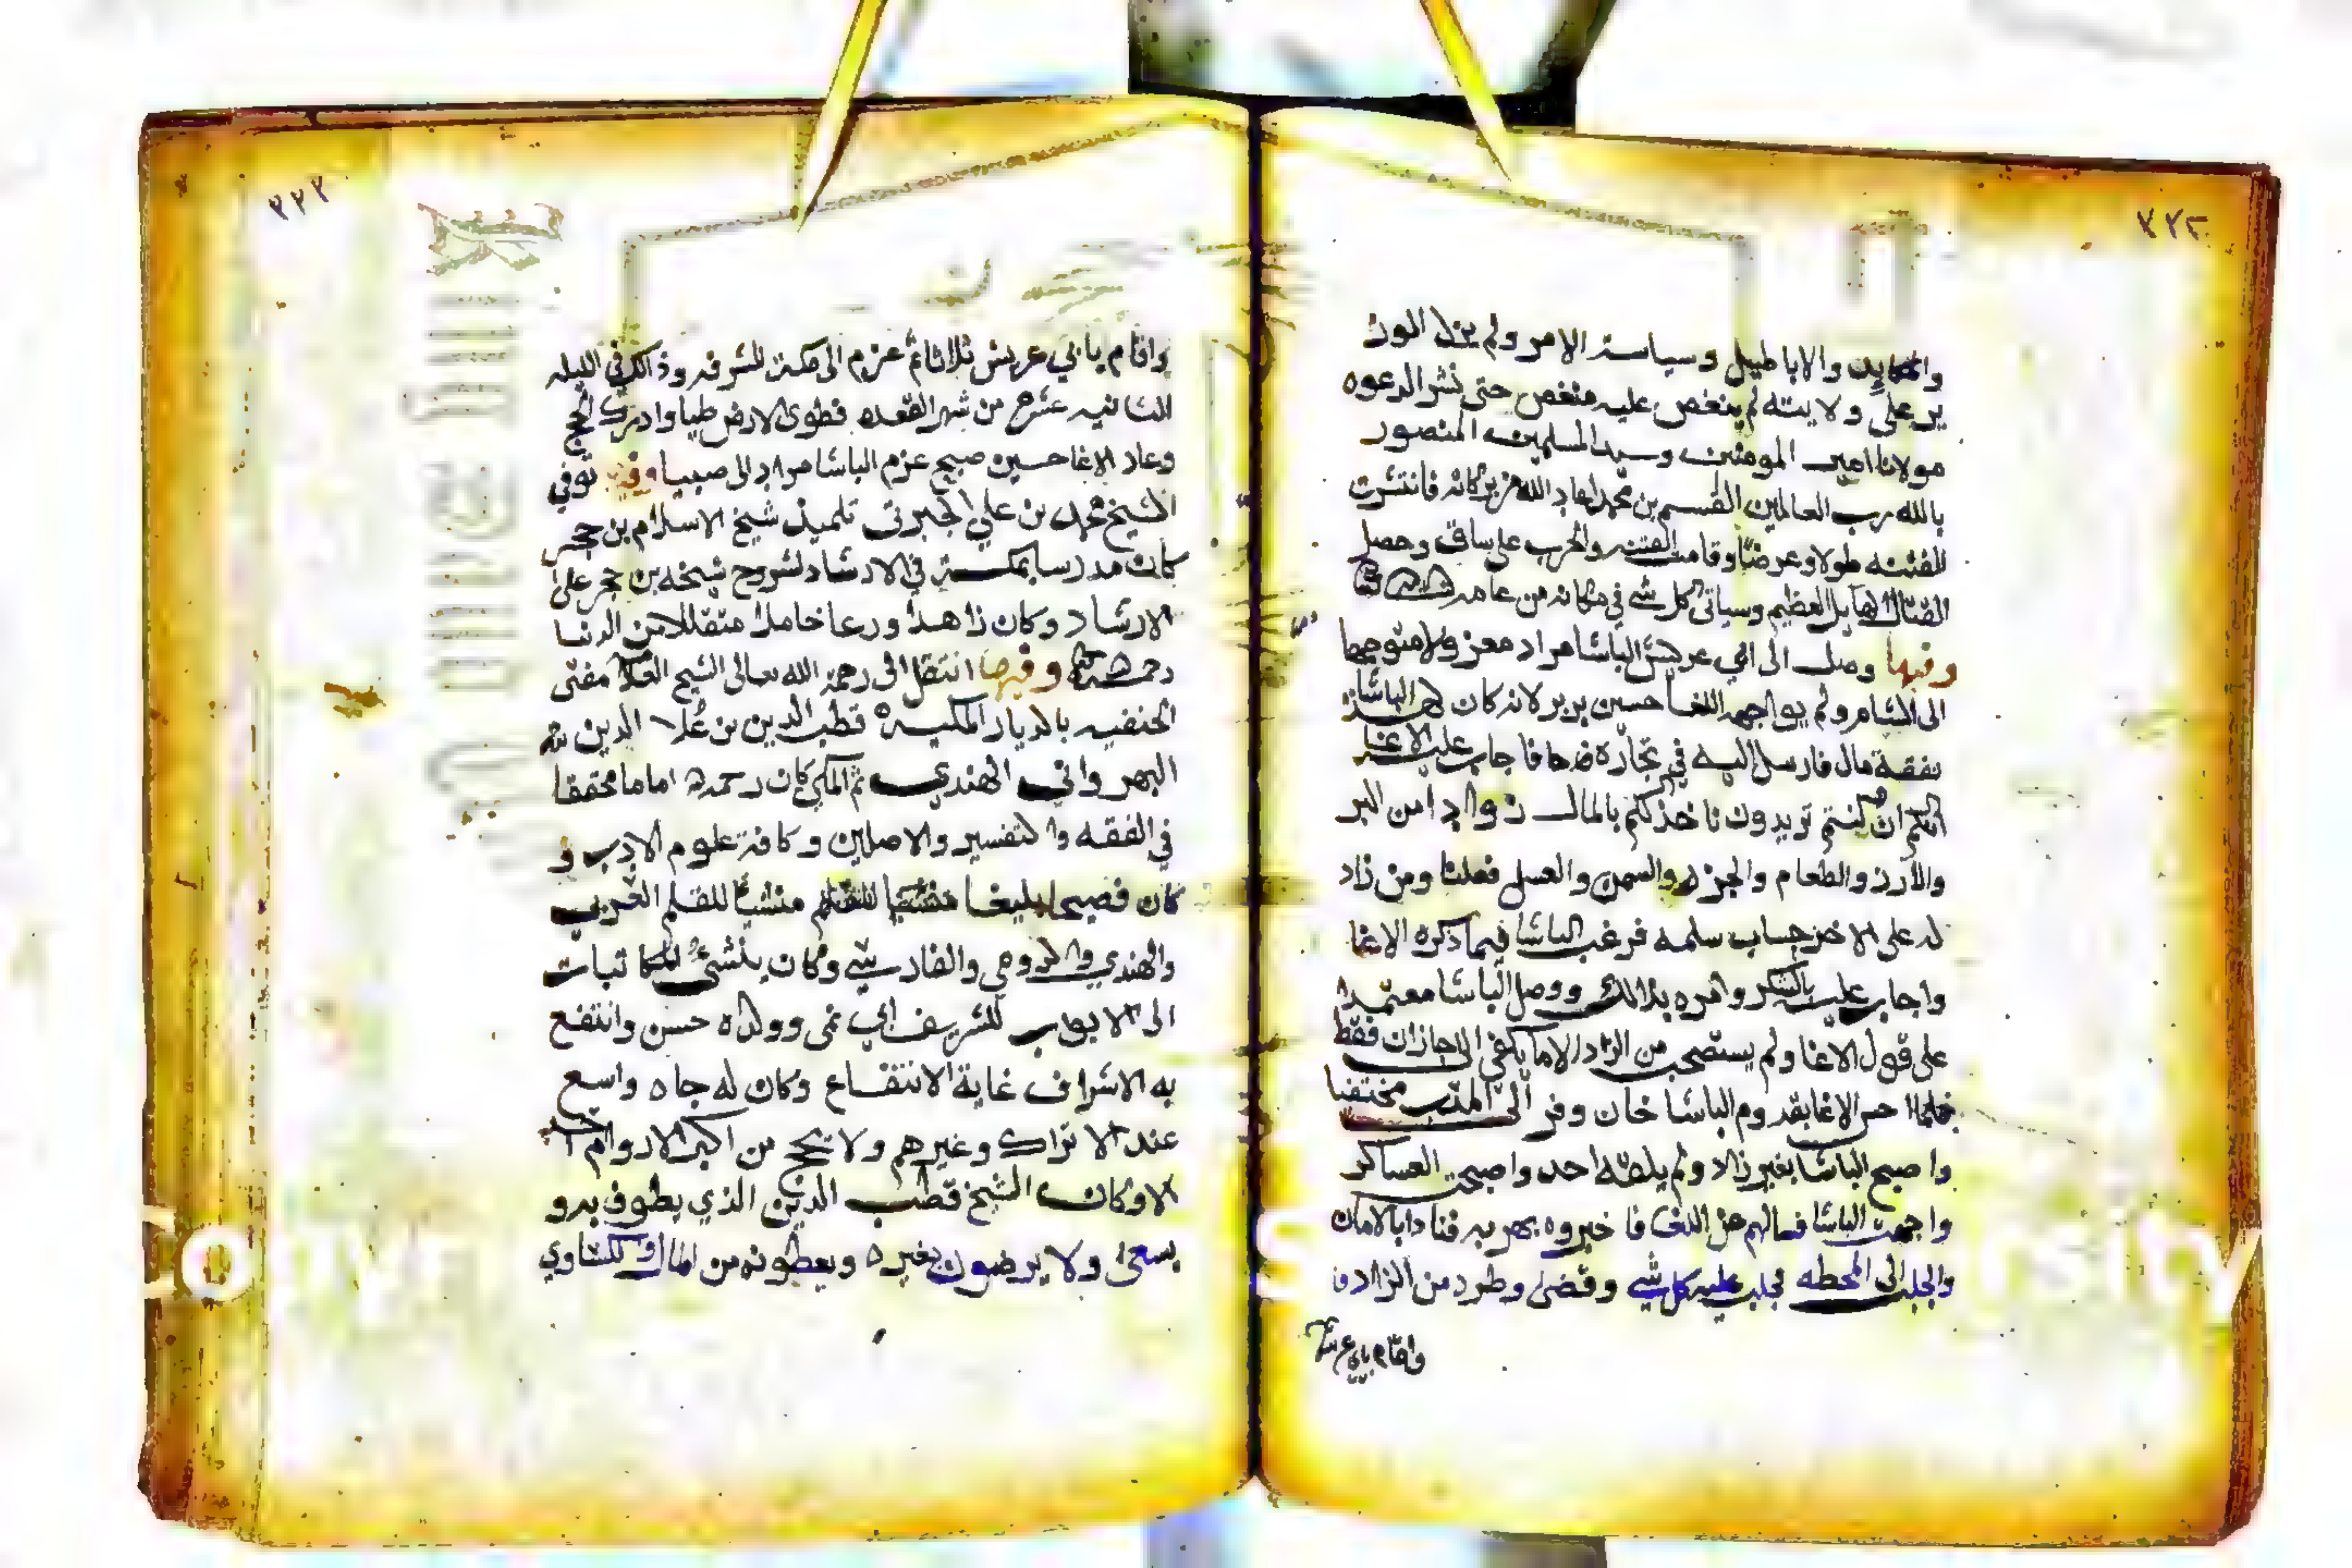 ٣٢٢
والاباطيل وسياسة الامر ولم يزل الوزير
على ولايته لم ينغص عليه منغص حتى نشر الدعوه
مولانا امير المومنين وسيد المسلمين المنصور
بالله رب العالمين القسم بن محمد فانتشرت
الفتنه طولا وعرضا وقامت الفتنه والحرب على ساق وحصل
القتال الهايل العظيم وسياتي كل شي في مكانه من
وفيها وصل الى ابي عريش الباشا مراد معزولا متوجها
الى الشام ولم يواجهه الاغا حسين لانه كان الباشا
نفقة مال فارسل اليه في فاجاب عليه الاغا
انكم ان كنتم تريدون ناخذ لكم بالمال زوادا من البر
والارز والطعام والجزر والسمن والعسل فعلنا ومن زاد
له على الاخر حساب سلمه فرغب الباشا فيما ذكره الاغا
واجاب عليه بالشكر وامره بذالك ووصل الباشا معتمدا
على قول الاغا ولم يستصحب من الزاد الا ما يكفي الى جازان فقط
فلما احس الاغا بقدوم الباشا خاف وفر الى مختفيا
واصبح الباشا بغير زاد ولم يلقه احد واصبحت العساكر
الباشا فسالهم عن الاغا فاخبروه بهربه فنادا بالامان
والجلب الى المحطه فجلب عليه كل شي وقضى وطره من الزاد
واقام بابي عريش
٣٢٣
واقام بابي عريش ثلاثا ثم عزم الى مكة المشرفه وذالك في الليله
الثانيه عشره من شهر القعده فطوى الارض طيا وادرك الحج
وعاد الاغا حسين صبح عزم الباشا مراد الى صبيا وفيها توفي
الشيخ محمد بن علي الجبرتي تلميذ شيخ الاسلام بن حجر
كان مدرسا بمكة في الارشاد لشروح شيخه بن حجر على
الارشاد وكان زاهدا ورعا خاملا متقللا من الدنيا
وفيها انتقل الى رحمة الله تعالى الشيخ مفتي
الحنفيه بالديار المكيه قطب الدين بن علا الدين
الهندي ثم المكي كان رحمه اماما محققا
في الفقه والتفسير والاصلين وكافة علوم الادب و
كان فصيحا بليغا منشيا للقلم العربي
والهندي والرومي والفارسي وكان ينشئ المكاتبات
الى الابواب للشريف ابي نمى وولده حسن وانتفع
به الاشراف غاية الانتفاع وكان له جاه واسع
عند الاتراك وغيرهم ولا يحج من اكبر الاروام
الا وكان الشيخ قطب الدين الذي يطوف به و
يسعى ولا يرضون بغيره ويعطونه من المال